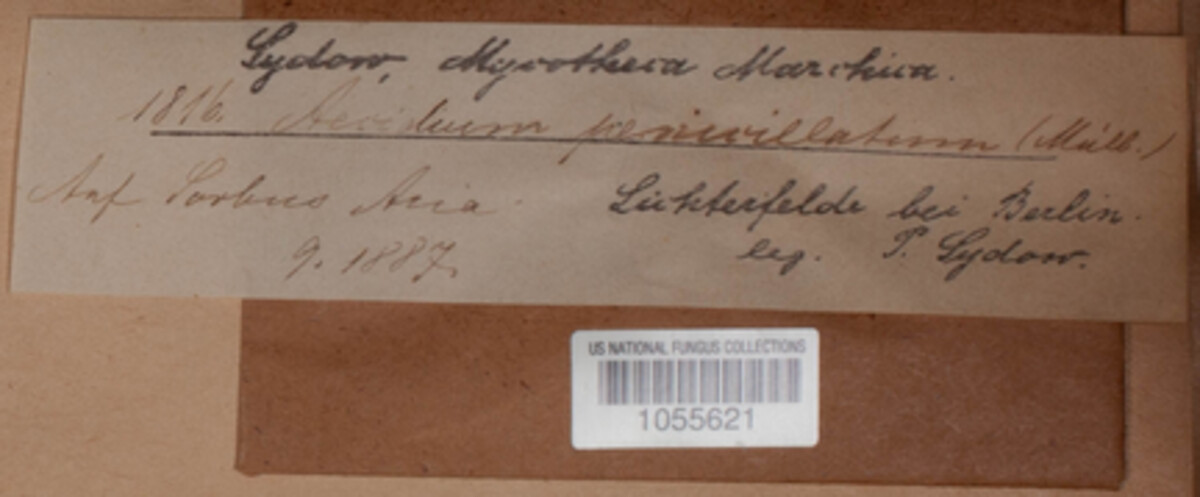 Sydow, Mycotheca Marchica.
1816. Aecidium penicillatum (Müll.)
Auf Sorbus Aria.
9. 1887.
Lichterfelde bei Berlin.
leg. P. Sydow.
US NATIONAL FUNGUS COLLECTIONS
1055621